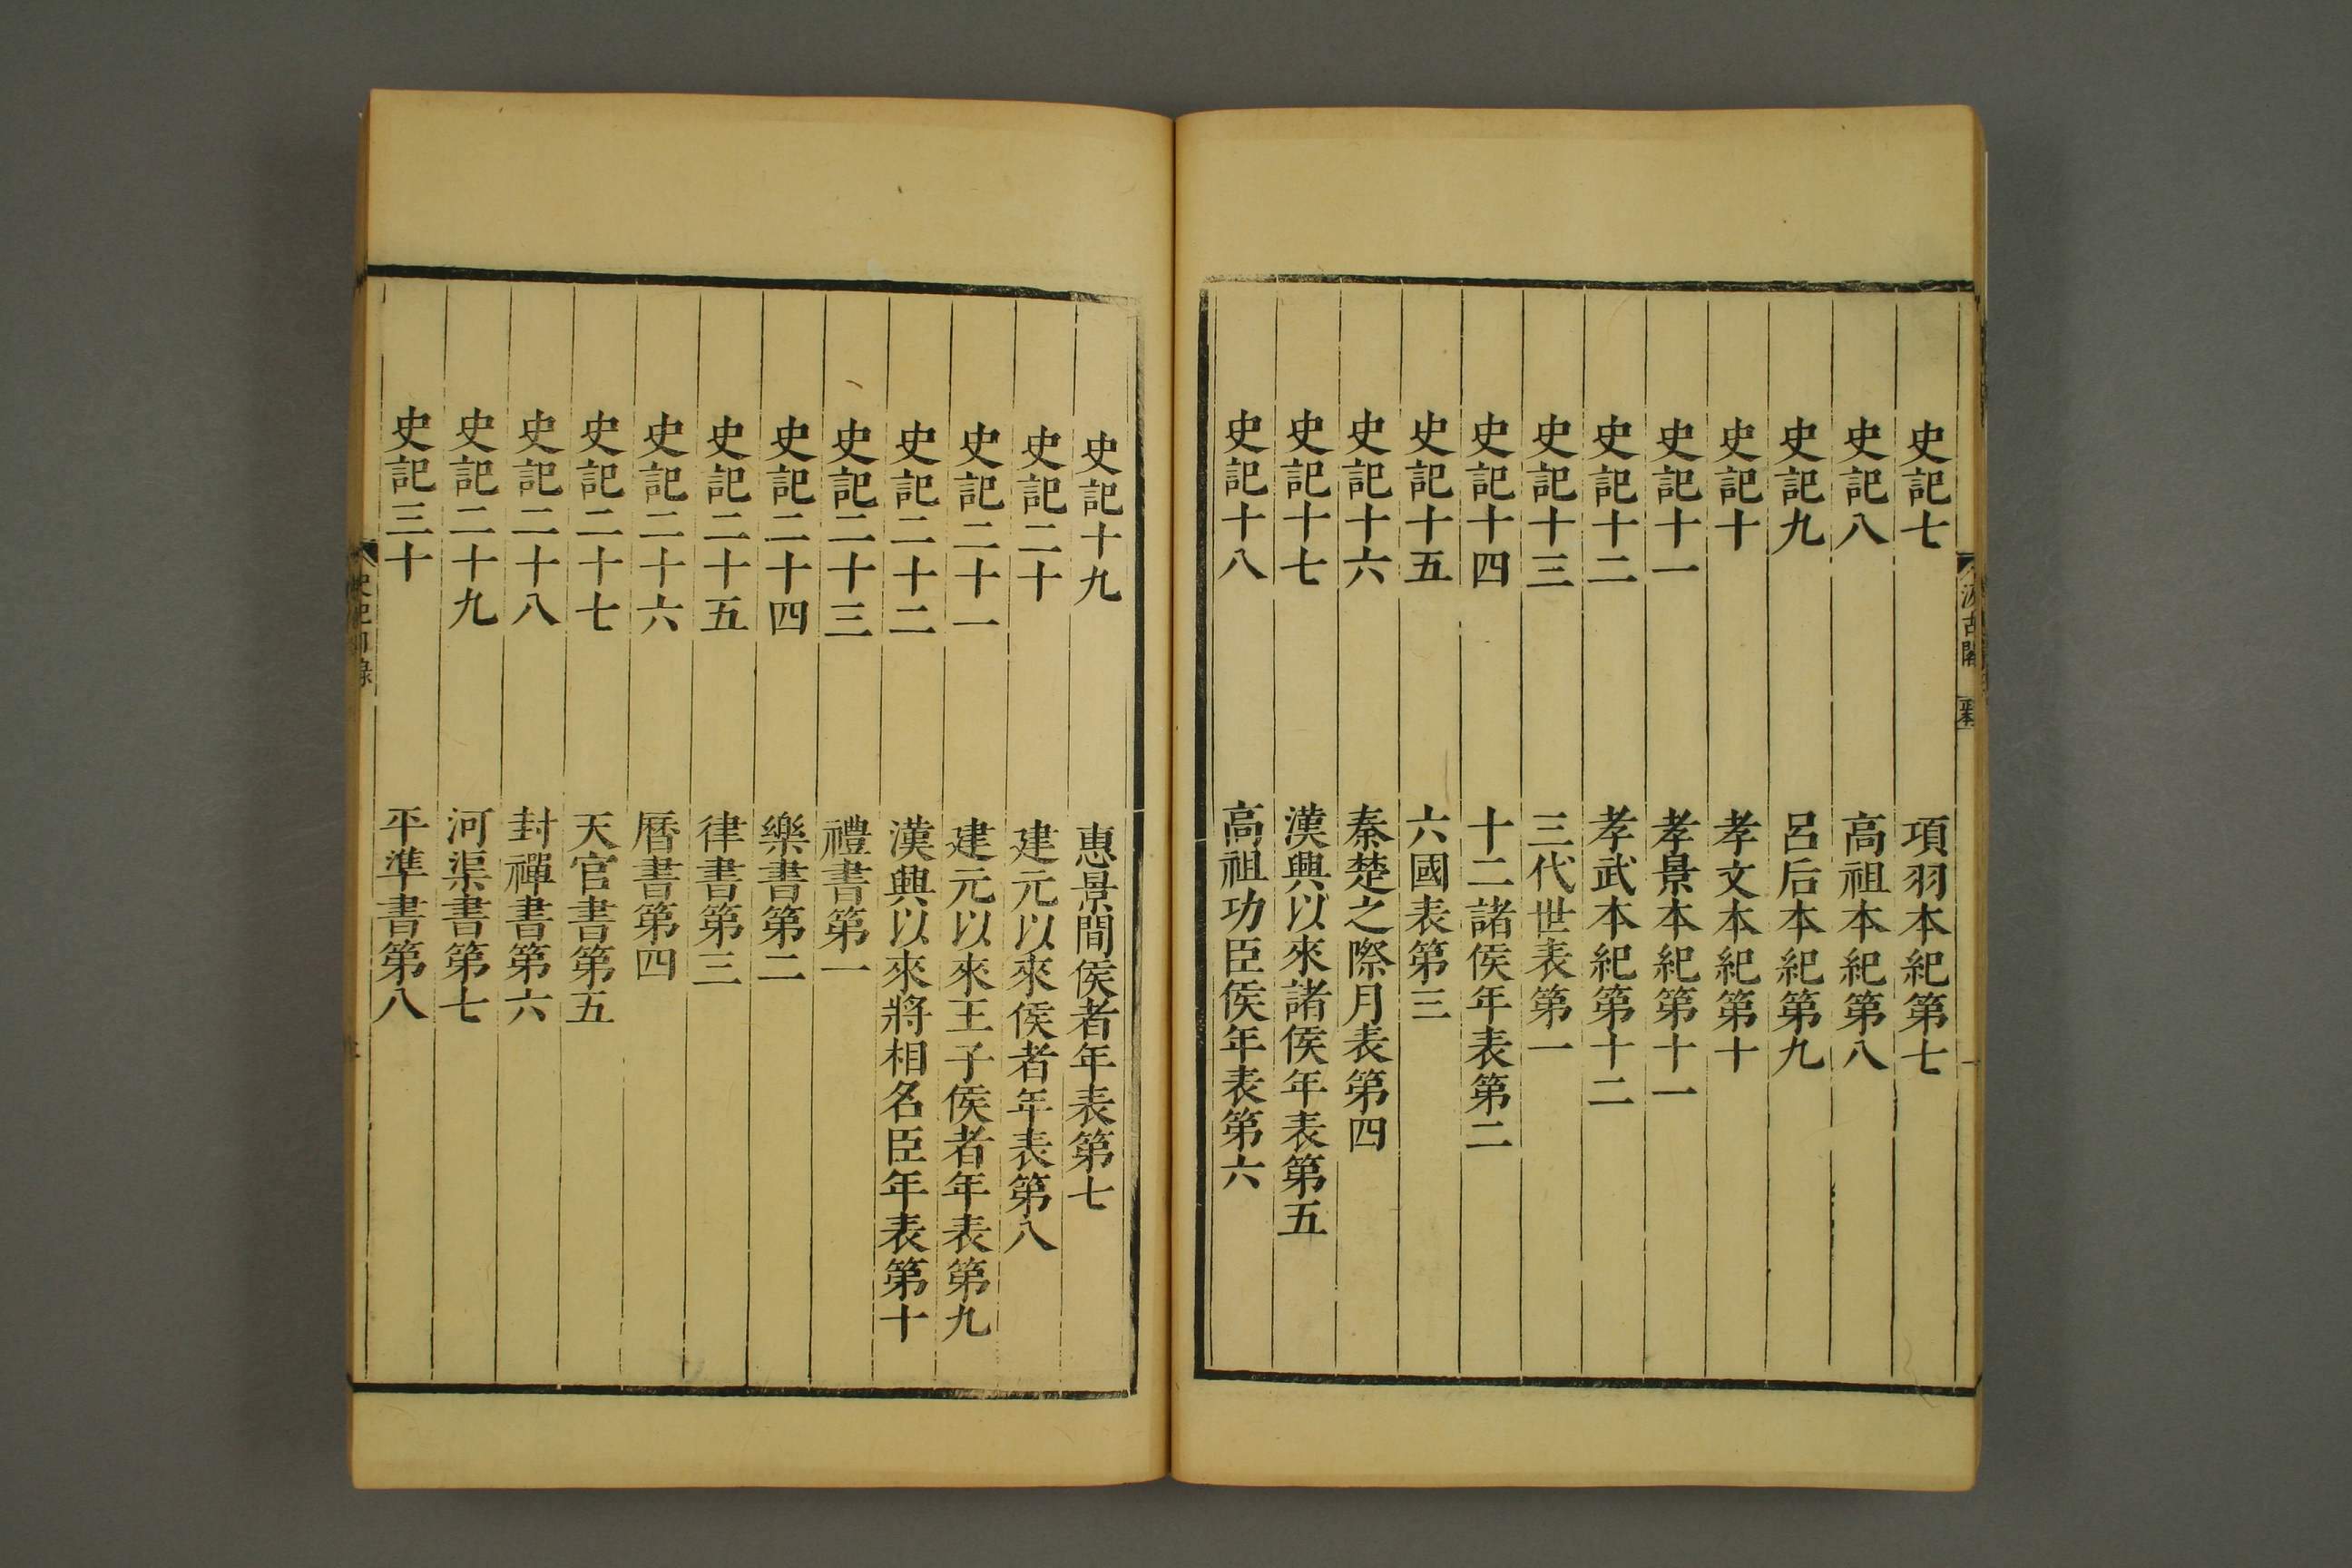 汲古閣
史記七 項羽本紀第七
史記八 高祖本紀第八
史記九 呂后本紀第九
史記十 孝文本紀第十
史記十一 孝景本紀第十一
史記十二 孝武本紀第十二
史記十三 三代世表第一
史記十四 十二諸侯年表第二
史記十五 六國表第三
史記十六 秦楚之際月表第四
史記十七 漢興以來諸侯年表第五
史記十八 高祖功臣侯年表第六
史記十九 惠景間侯者年表第七
史記二十 建元以來侯者年表第八
史記二十一 建元以來王子侯者年表第九
史記二十二 漢興以來將相名臣年表第十
史記二十三 禮書第一
史記二十四 樂書第二
史記二十五 律書第三
史記二十六 曆書第四
史記二十七 天官書第五
史記二十八 封禪書第六
史記二十九 河渠書第七
史記三十 平準書第八
史記目錄